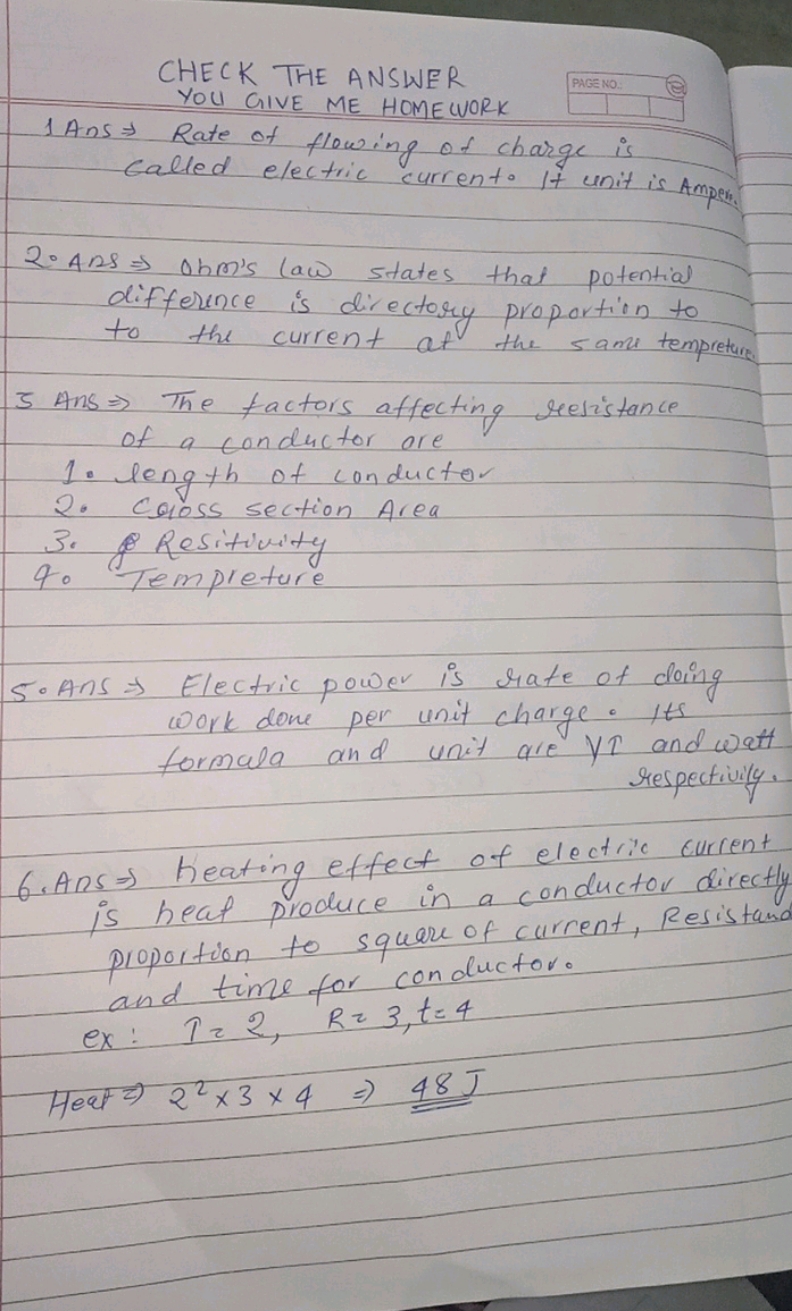 CHECK THE ANSWER
YOU GIVE ME HOMEWORK
PAGE NO.:
1 Ans ⇒ Rate of flowing of charge is
called electric current. It unit is Amper.
2. Ans ⇒ Ohm's law states that potential
difference is directory proportion to
to the current at the same tempreture.
3 Ans ⇒ The factors affecting resistance
of a conductor are
1. length of conductor
2. Cross section Area
3. Resitivity
4. Tempreture
5. Ans ⇒ Electric power is rate of doing
work done per unit charge. Its
formula and unit are VI and watt
respectivily.
6. Ans ⇒ heating effect of electric current
is heat produce in a conductor directly
proportion to square of current, Resistand
and time for conductor.
ex: I = 2, R = 3, t = 4
Heat ⇒ 2² × 3 × 4 ⇒ 48 J